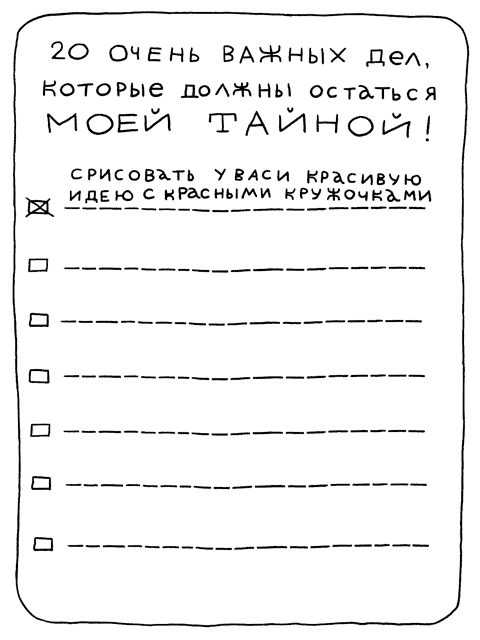 20 ОЧЕНЬ ВАЖНЫХ ДЕЛ,
КОТОРЫЕ ДОЛЖНЫ ОСТАТЬСЯ
МОЕЙ ТАЙНОЙ!
СРИСОВАТЬ У ВАСИ КРАСИВУЮ
ИДЕЮ С КРАСНЫМИ КРУЖОЧКАМИ